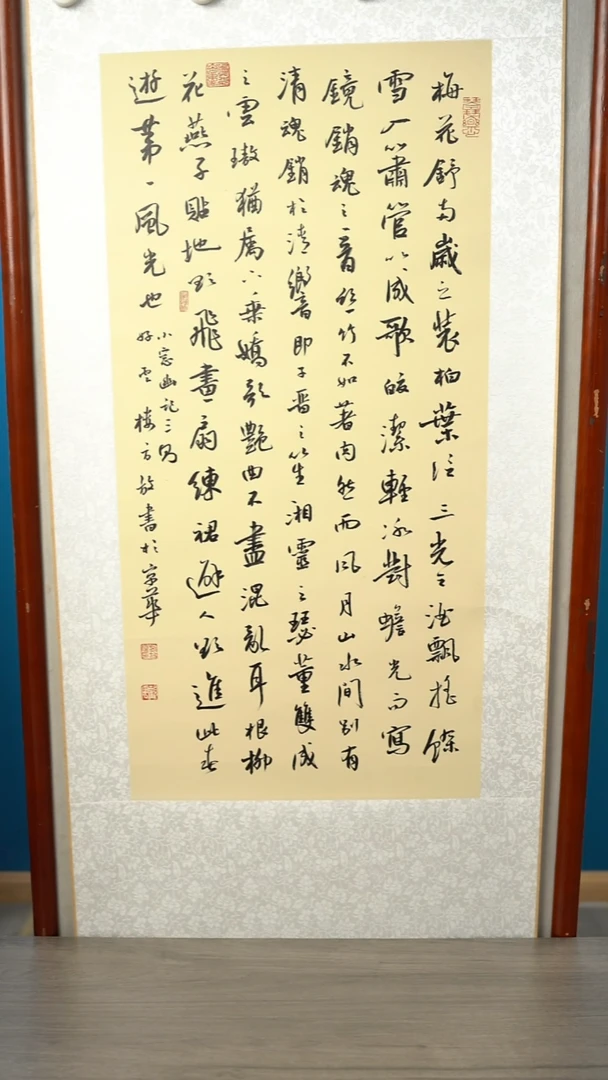 梅花舒兩歲之裝柏葉泛三光之酒飄摇餘
雪入簫管以成歌皎潔輕冰對蟾光而寫
鏡銷魂之音丝竹不如著肉然而風月山水間别有
清魂銷於清響即子晋之笙湘靈之瑟董雙成
之雲璈猶属下乘嬌歌艷曲不盡混亂耳根柳
花燕子貼地欲飛畫扇練裙避人欲進此春
遊第一風光也
小窓幽記三則
好雲樓方放書於京華